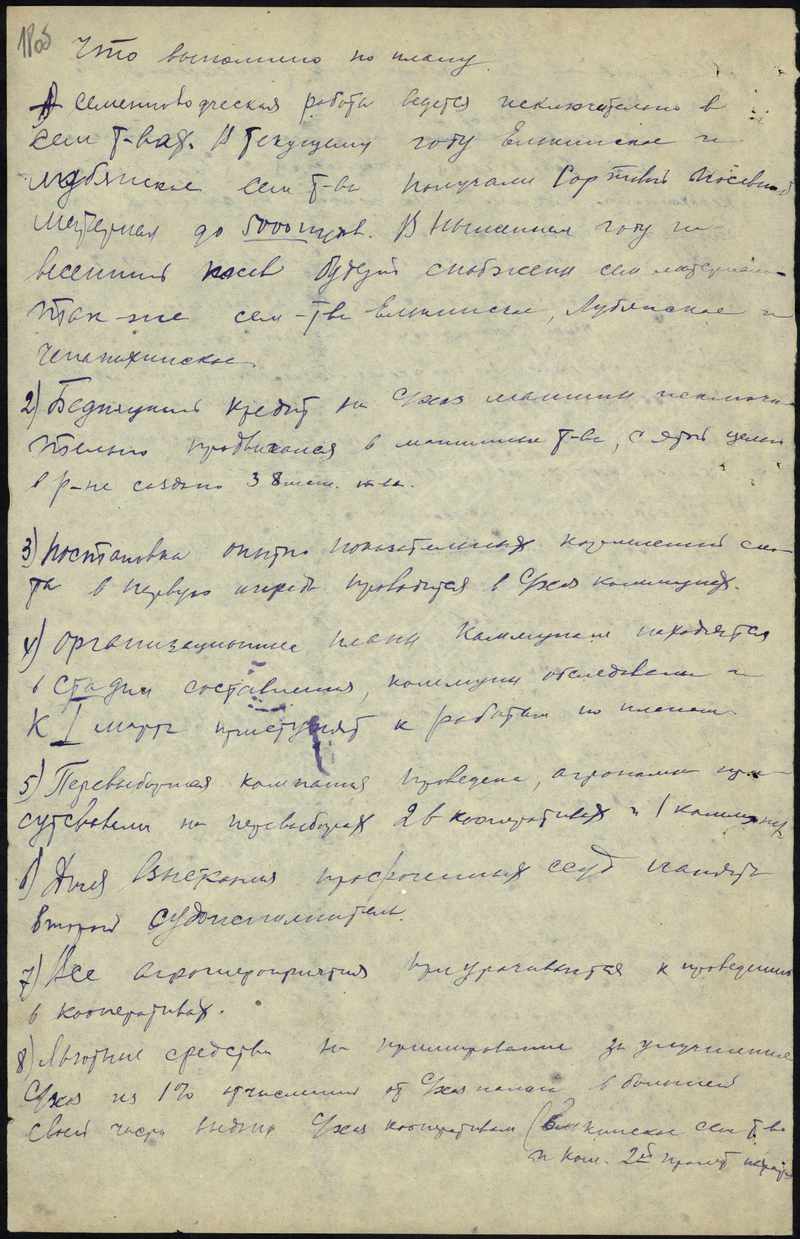 Что выполнено по плану
1) семеноводческая работа ведется исключительно в
сем т-вах. В текущему году Елкинское и
Лубянское сем т-ва получали сортовой посевной
материал до 5000 пудов. В нынешнем году на
весенний посев будут снабжены сем материал
так-же сем-т-ва Елкинское, Лубянское и
2) Бедняцкий кредит на с/хоз машины исключи-
тельно продвигался в машинные т-ва, с этой целью
в р-не создано 38 маш. т-ва.
3) Постановка опытно показательных кормлений ско-
та в первую очередь проводится в с/хоз коммунах.
4) Организационные планы Коммунам находятся
в стадии составления, коммуны обследованы и
к 1 марта приступят к работам по планам
5) Перевыборная компания проведена, агрономы при-
сутствовали на перевыборах 2 в кооперативах и 1 коммуне
6) Для взыскания просроченных ссуд нанят
второй судоисполнитель.
7) Все агромероприятия приурачиваются к проведению
в кооперативах.
8) Льготные средства на премирование за улучшение
с/хоз из 1% отчисления от с/хоз налога в большей
своей части выданы с/хоз кооперативам (Елкинское сем т-во
и ком. 2ой